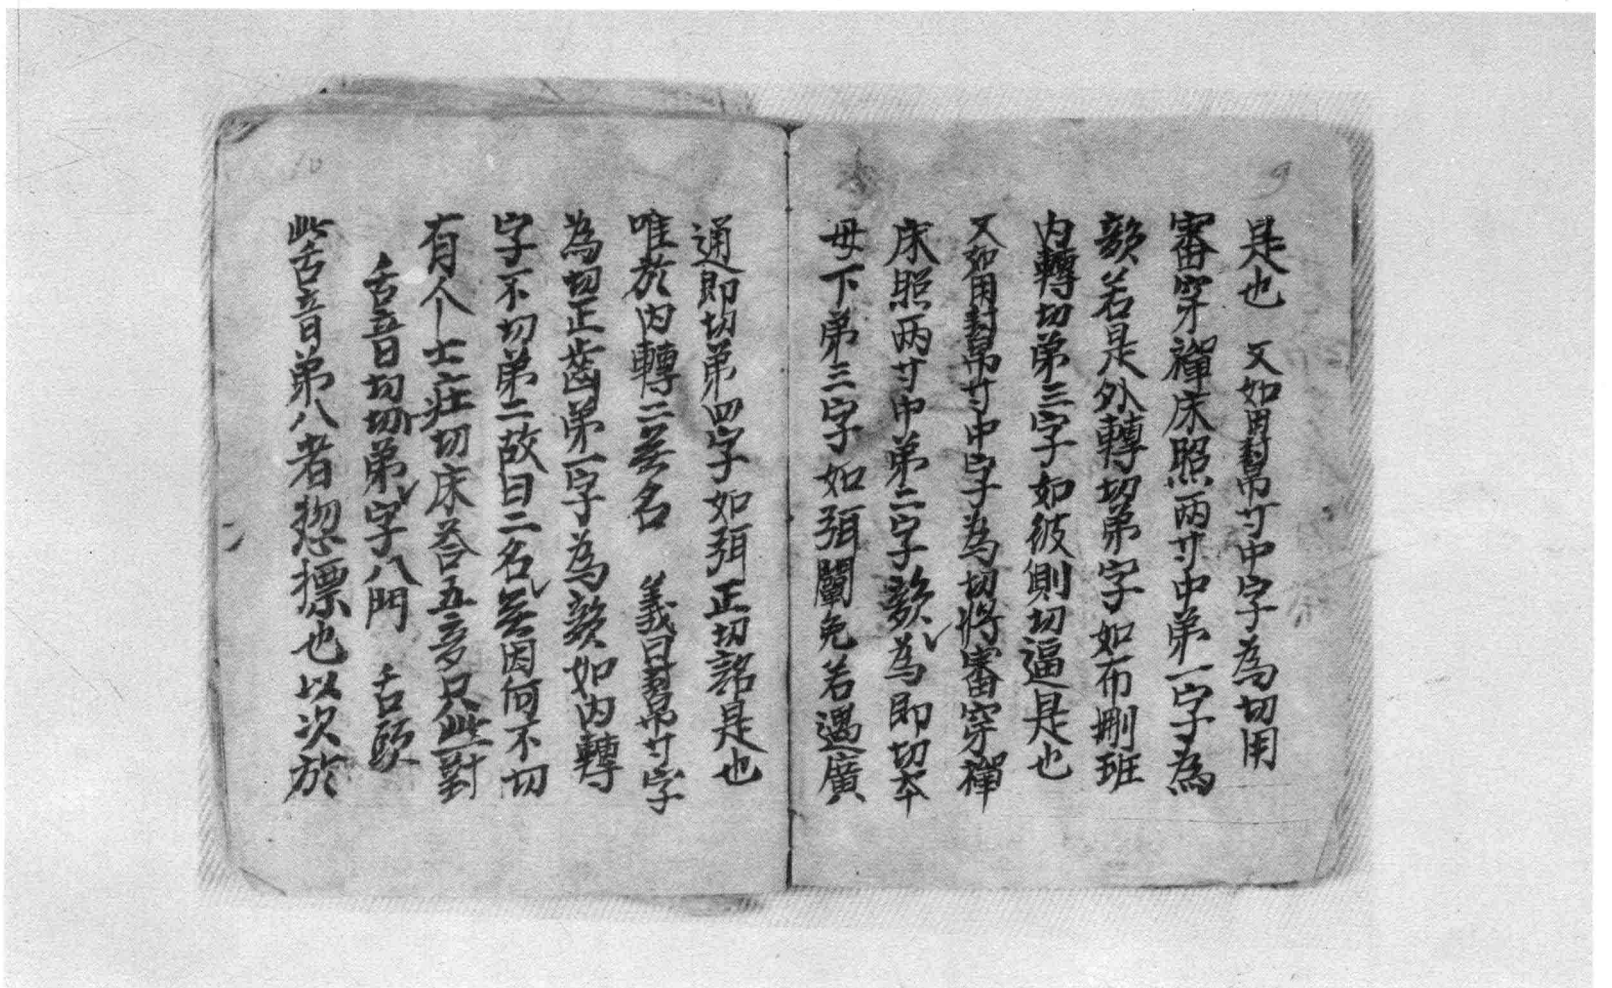 9
是也 又如用對幫寸中字為切用
審穿禪床照兩寸中第一字為
韻若是外轉切第字如布刪班
內轉切第三字如彼側切逼是也
又如用對幫寸中字為切將審穿禪
床照兩寸中第二字韻為即切本
母下第三字如弭闡免若遇廣
10
通即切第四字如弭正切詺是也
唯於內轉二無名 義曰對幫寸字
為切正齒第一字為韻如內轉
字不切第二故曰二名無因何不切
有个士疘切床荅五多只此對
舌音切切第字八門 舌頭
此舌音第八者惣摽也以次於